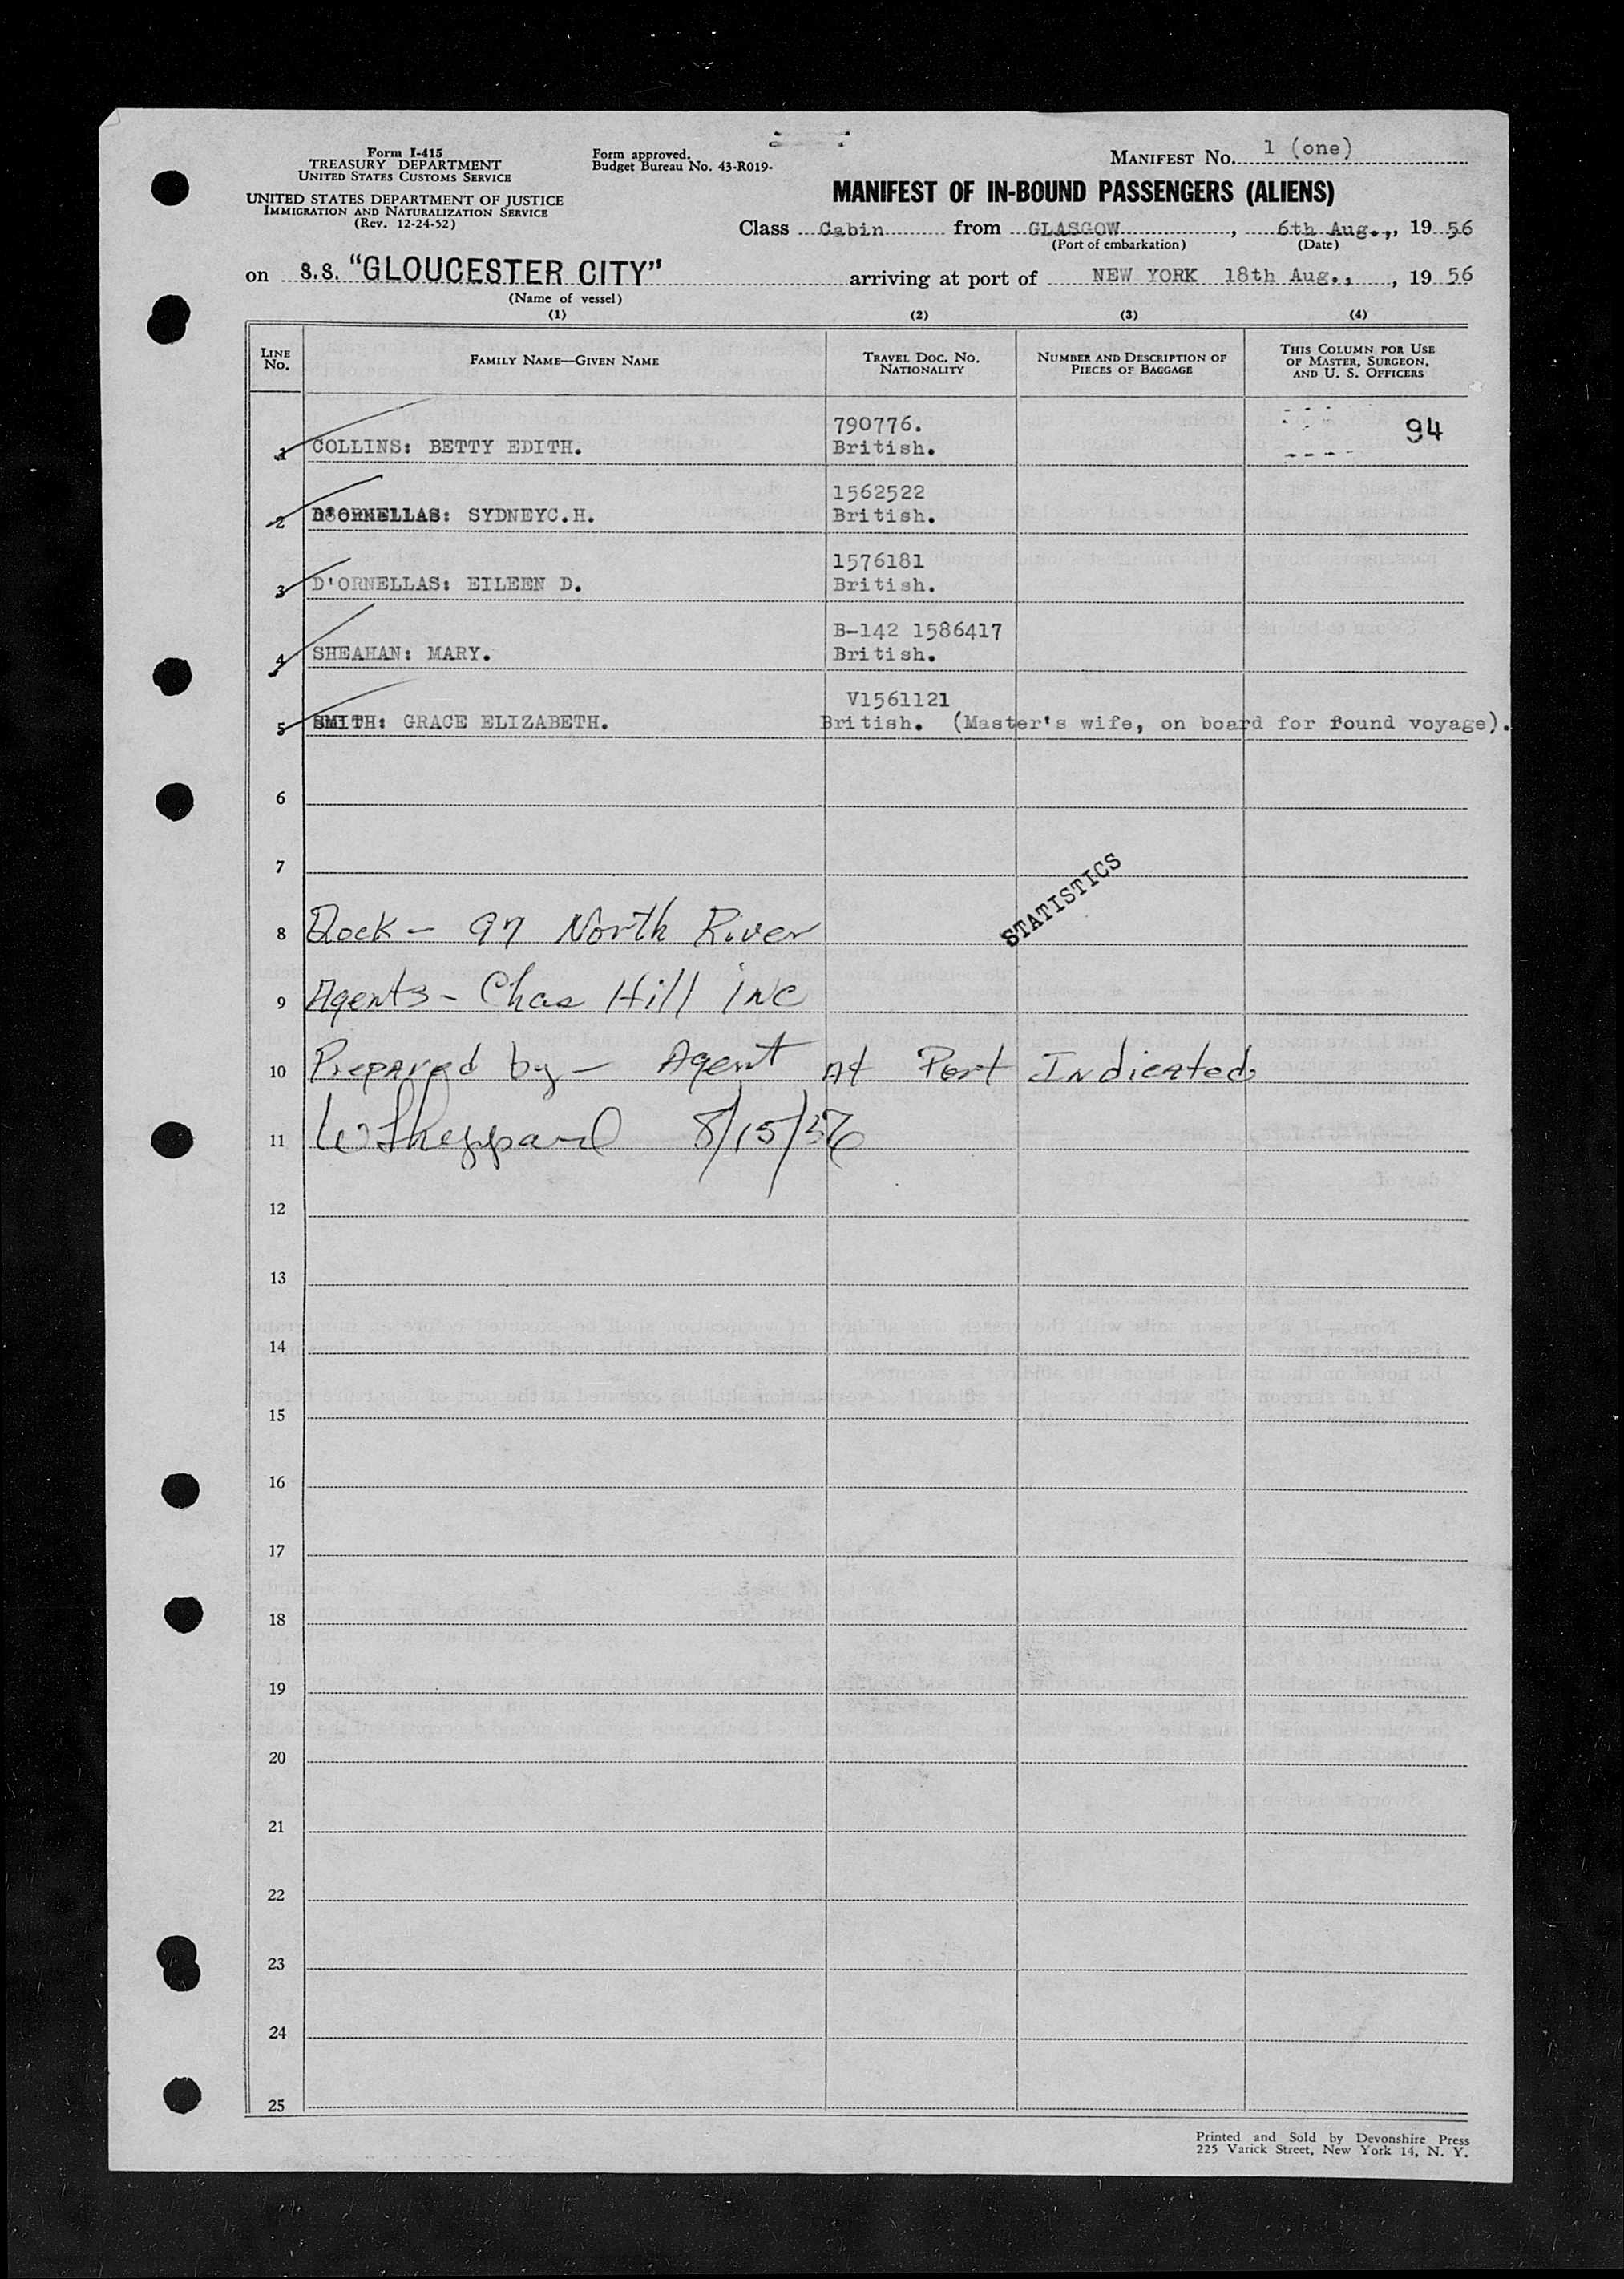 Form I-415
TREASURY DEPARTMENT
UNITED STATES CUSTOMS SERVICE
UNITED STATES DEPARTMENT OF JUSTICE
IMMIGRATION AND NATURALIZATION SERVICE
(Rev. 12-24-52)
Form approved.
Budget Bureau No. 43-R019-
MANIFEST No. 1 (one)
MANIFEST OF IN-BOUND PASSENGERS (ALIENS)
Class Cabin from GLASGOW, 6th Aug., 19 56
(Port of embarkation) (Date)
on S.S. "GLOUCESTER CITY" arriving at port of NEW YORK 18th Aug., , 19 56
(Name of vessel)
(1) (2) (3) (4)
LINE No. FAMILY NAME—GIVEN NAME TRAVEL DOC. NO. NATIONALITY NUMBER AND DESCRIPTION OF PIECES OF BAGGAGE THIS COLUMN FOR USE OF MASTER, SURGEON, AND U. S. OFFICERS
790776. 94
1 COLLINS: BETTY EDITH. British.
1562522
2 D'ORNELLAS: SYDNEYC.H. British.
1576181
3 D'ORNELLAS: EILEEN D. British.
B-142 1586417
4 SHEAHAN: MARY. British.
V1561121
5 SMITH: GRACE ELIZABETH. British. (Master's wife, on board for round voyage).
6
7
STATISTICS
8 Dock – 97 North River
9 Agents – Chas Hill inc
10 Prepared by – Agent At Port Indicated
11 W Sheppard 8/15/56
12
13
14
15
16
17
18
19
20
21
22
23
24
25
Printed and Sold by Devonshire Press
225 Varick Street, New York 14, N. Y.